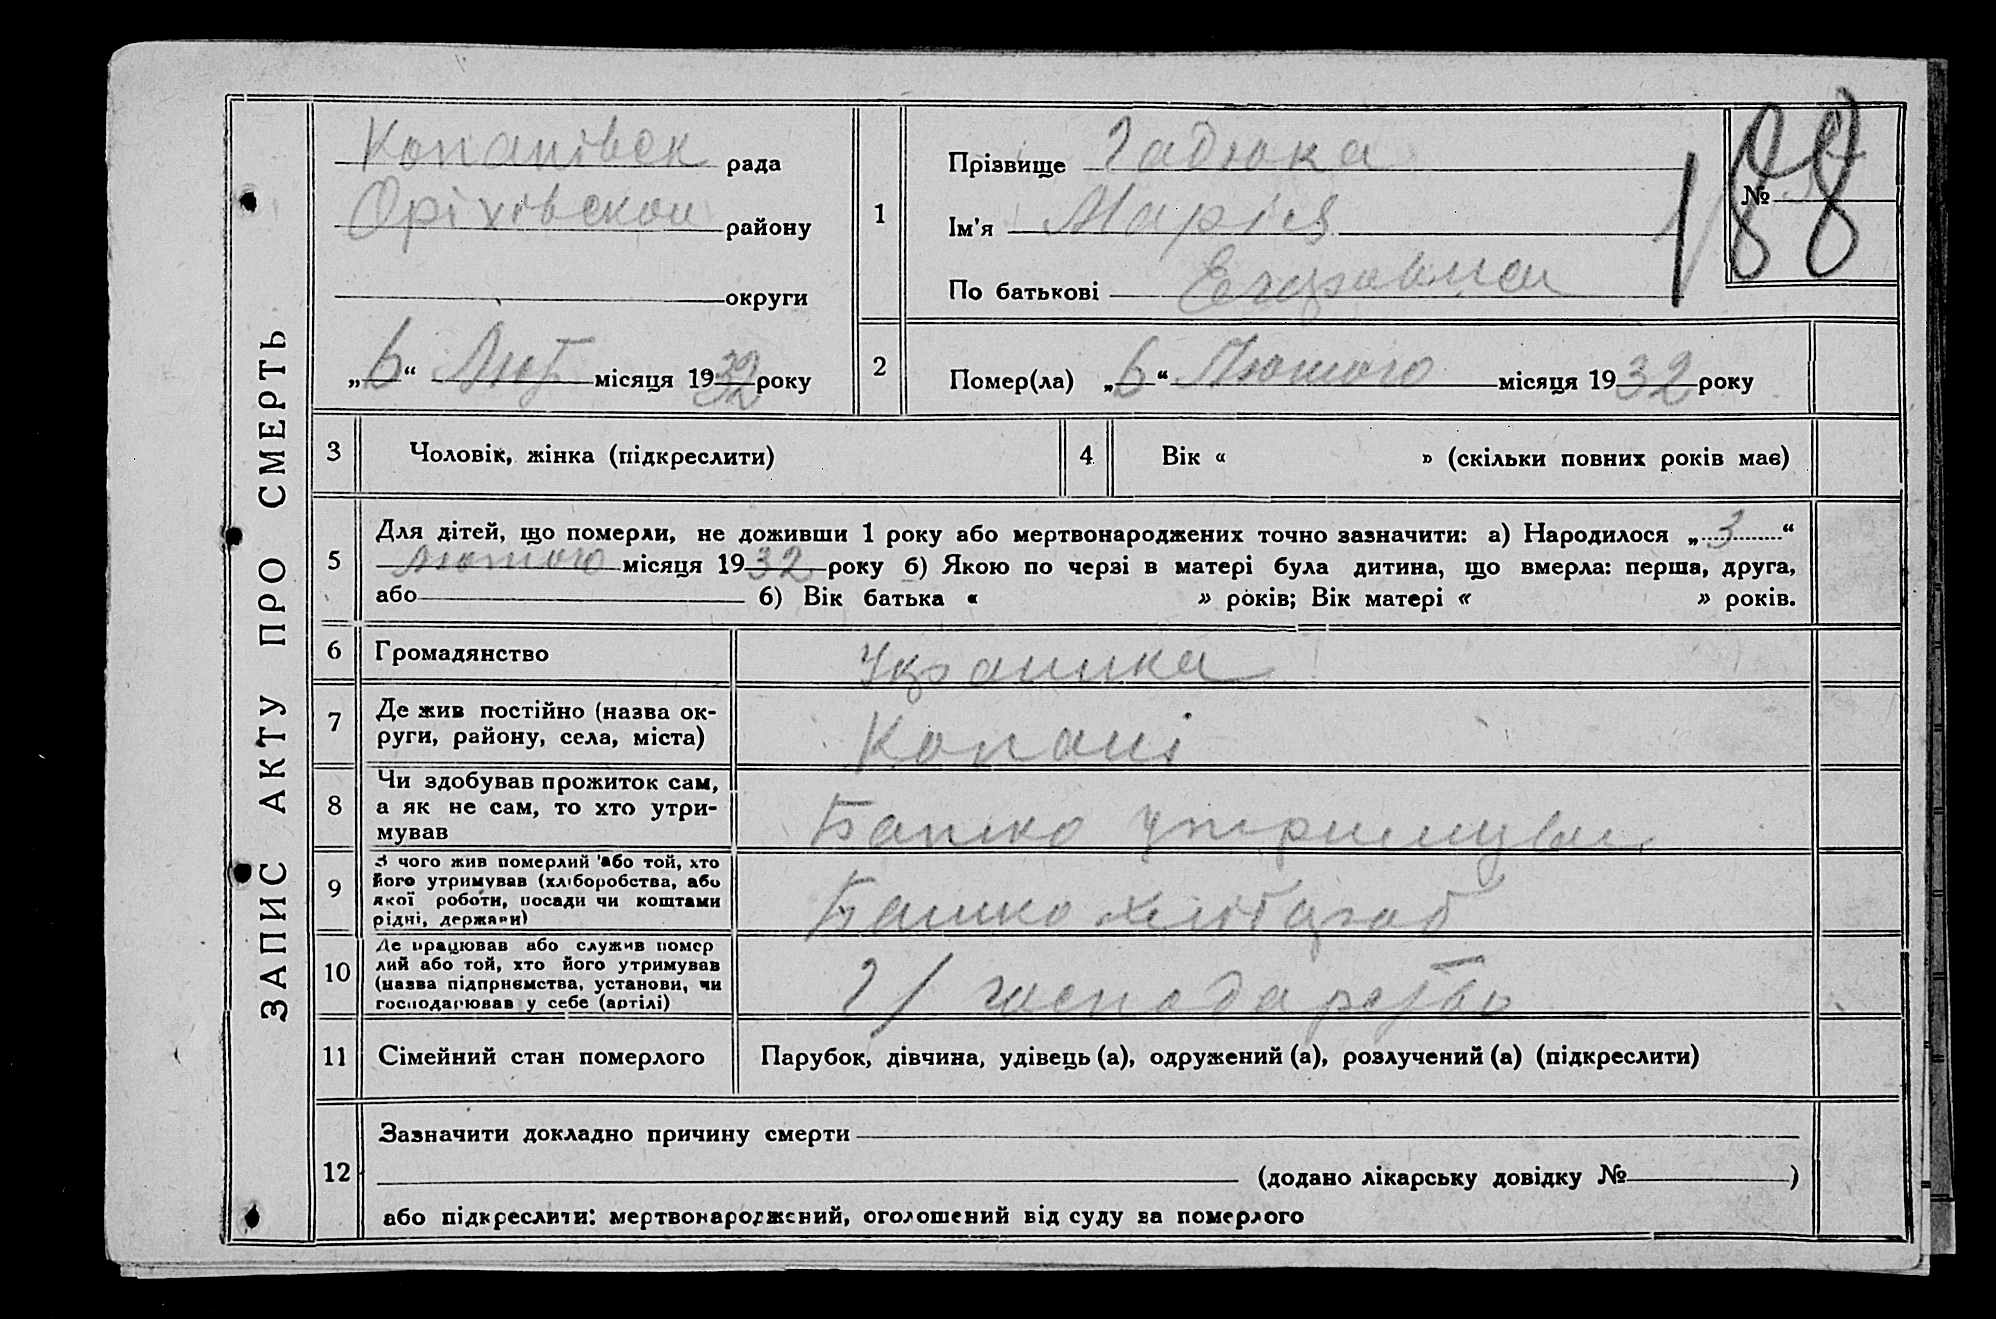 ЗАПИС АКТУ ПРО СМЕРТЬ
Копанівськ рада
Оріхівськои району
округи
„6“ Лют місяця 1932 року
1
Прізвище Гадюка
Ім'я Марія
По батькові
№
188
2
Помер(ла) „6“ Лютого місяця 1932 року
3
Чоловік, жінка (підкреслити)
4
Вік « » (скільки повних років має)
5
Для дітей, що померли, не доживши 1 року або мертвонароджених точно зазначити: а) Народилося „3“
лютого місяця 1932 року б) Якою по черзі в матері була дитина, що вмерла: перша, друга,
або б) Вік батька « » років; Вік матері « » років.
6
Громадянство
Украинка
7
Де жив постійно (назва ок-
руги, району, села, міста)
Копані
8
Чи здобував прожиток сам,
а як не сам, то хто утри-
мував
Батько утримував
9
З чого жив померлий або той, хто
його утримував (хліборобства, або
якої роботи, посади чи коштами
рідні, держави)
Батько хлібороб
10
Де працював або служив помер
лий або той, хто його утримував
(назва підприємства, установи, чи
господарював у себе (артілі)
г/ господарство
11
Сімейний стан померлого
Парубок, дівчина, удівець (а), одружений (а), розлучений (а) (підкреслити)
12
Зазначити докладно причину смерти
(додано лікарську довідку № )
або підкреслити: мертвонароджений, оголошений від суду за померлого